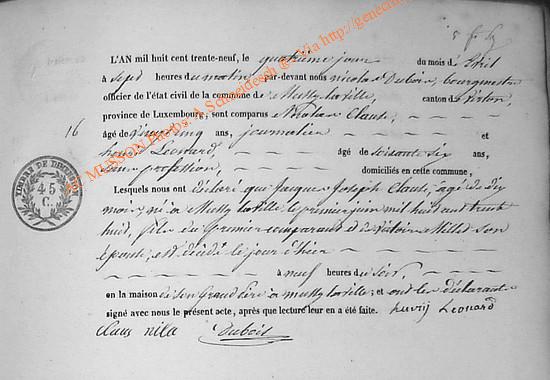 5 f. 
L'AN mil huit cent trente-neuf, le quatrième jour du mois d'avril
à sept heures du matin par-devant nous nicolas Dubois, bourgmestre
officier de l'état civil de la commune de Mussy la ville, canton de Virton,
province de Luxembourg, sont comparus Nicolas Claus,
16
âgé de vingt cinq ans, journalier et
Leonard, âgé de soixante six ans,
sans profession, domiciliés en cette commune,
Lesquels nous ont déclaré que Jacques Joseph Claus, âgé de dix
mois, né à Mussy la ville le premier juin mil huit cent trente
huit, fils du premier comparant et de Victoire Millet son
épouse, est décédé le jour d'hier
à neuf heures du soir,
en la maison de son Grand père à mussy la ville; et ont les déclarants
signé avec nous le présent acte, après que lecture leur en a été faite. Leonard
Claus nila Dubois
TIMBRE DE DIMENSION
45
C.
MUNSON
Schnaidesch @ Via http://genea